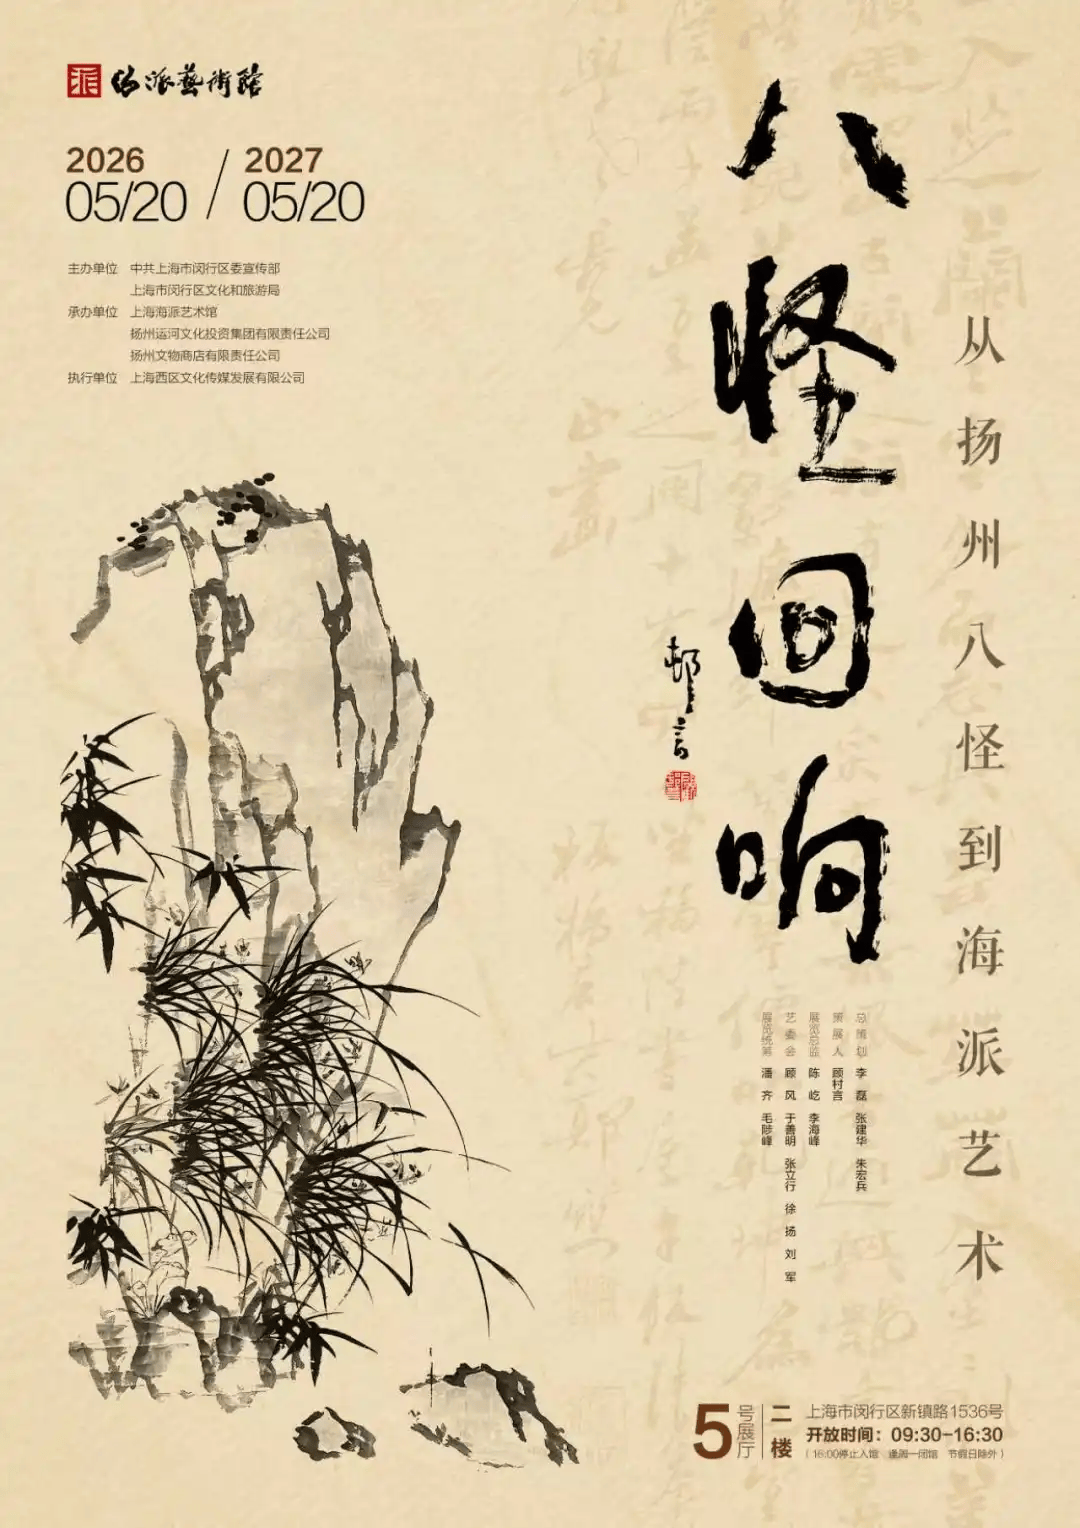 海派藝術館
2026 / 2027
05/20 05/20
主办单位 中共上海市闵行区委宣传部
上海市闵行区文化和旅游局
承办单位 上海海派艺术馆
扬州运河文化投资集团有限责任公司
扬州文物商店有限责任公司
执行单位 上海西区文化传媒发展有限公司
八怪回响
从扬州八怪到海派艺术
邨言
总策划 李磊 张建华 朱宏兵
策展人 顾村言
展览总监 陈屹 李海峰
艺委会 顾风 于善明 张立行 徐扬 刘军
展览统筹 潘齐 毛陟峰
5号展厅 二楼
上海市闵行区新镇路1536号
开放时间：09:30-16:30
（16:00停止入馆 逢周一闭馆 节假日除外）